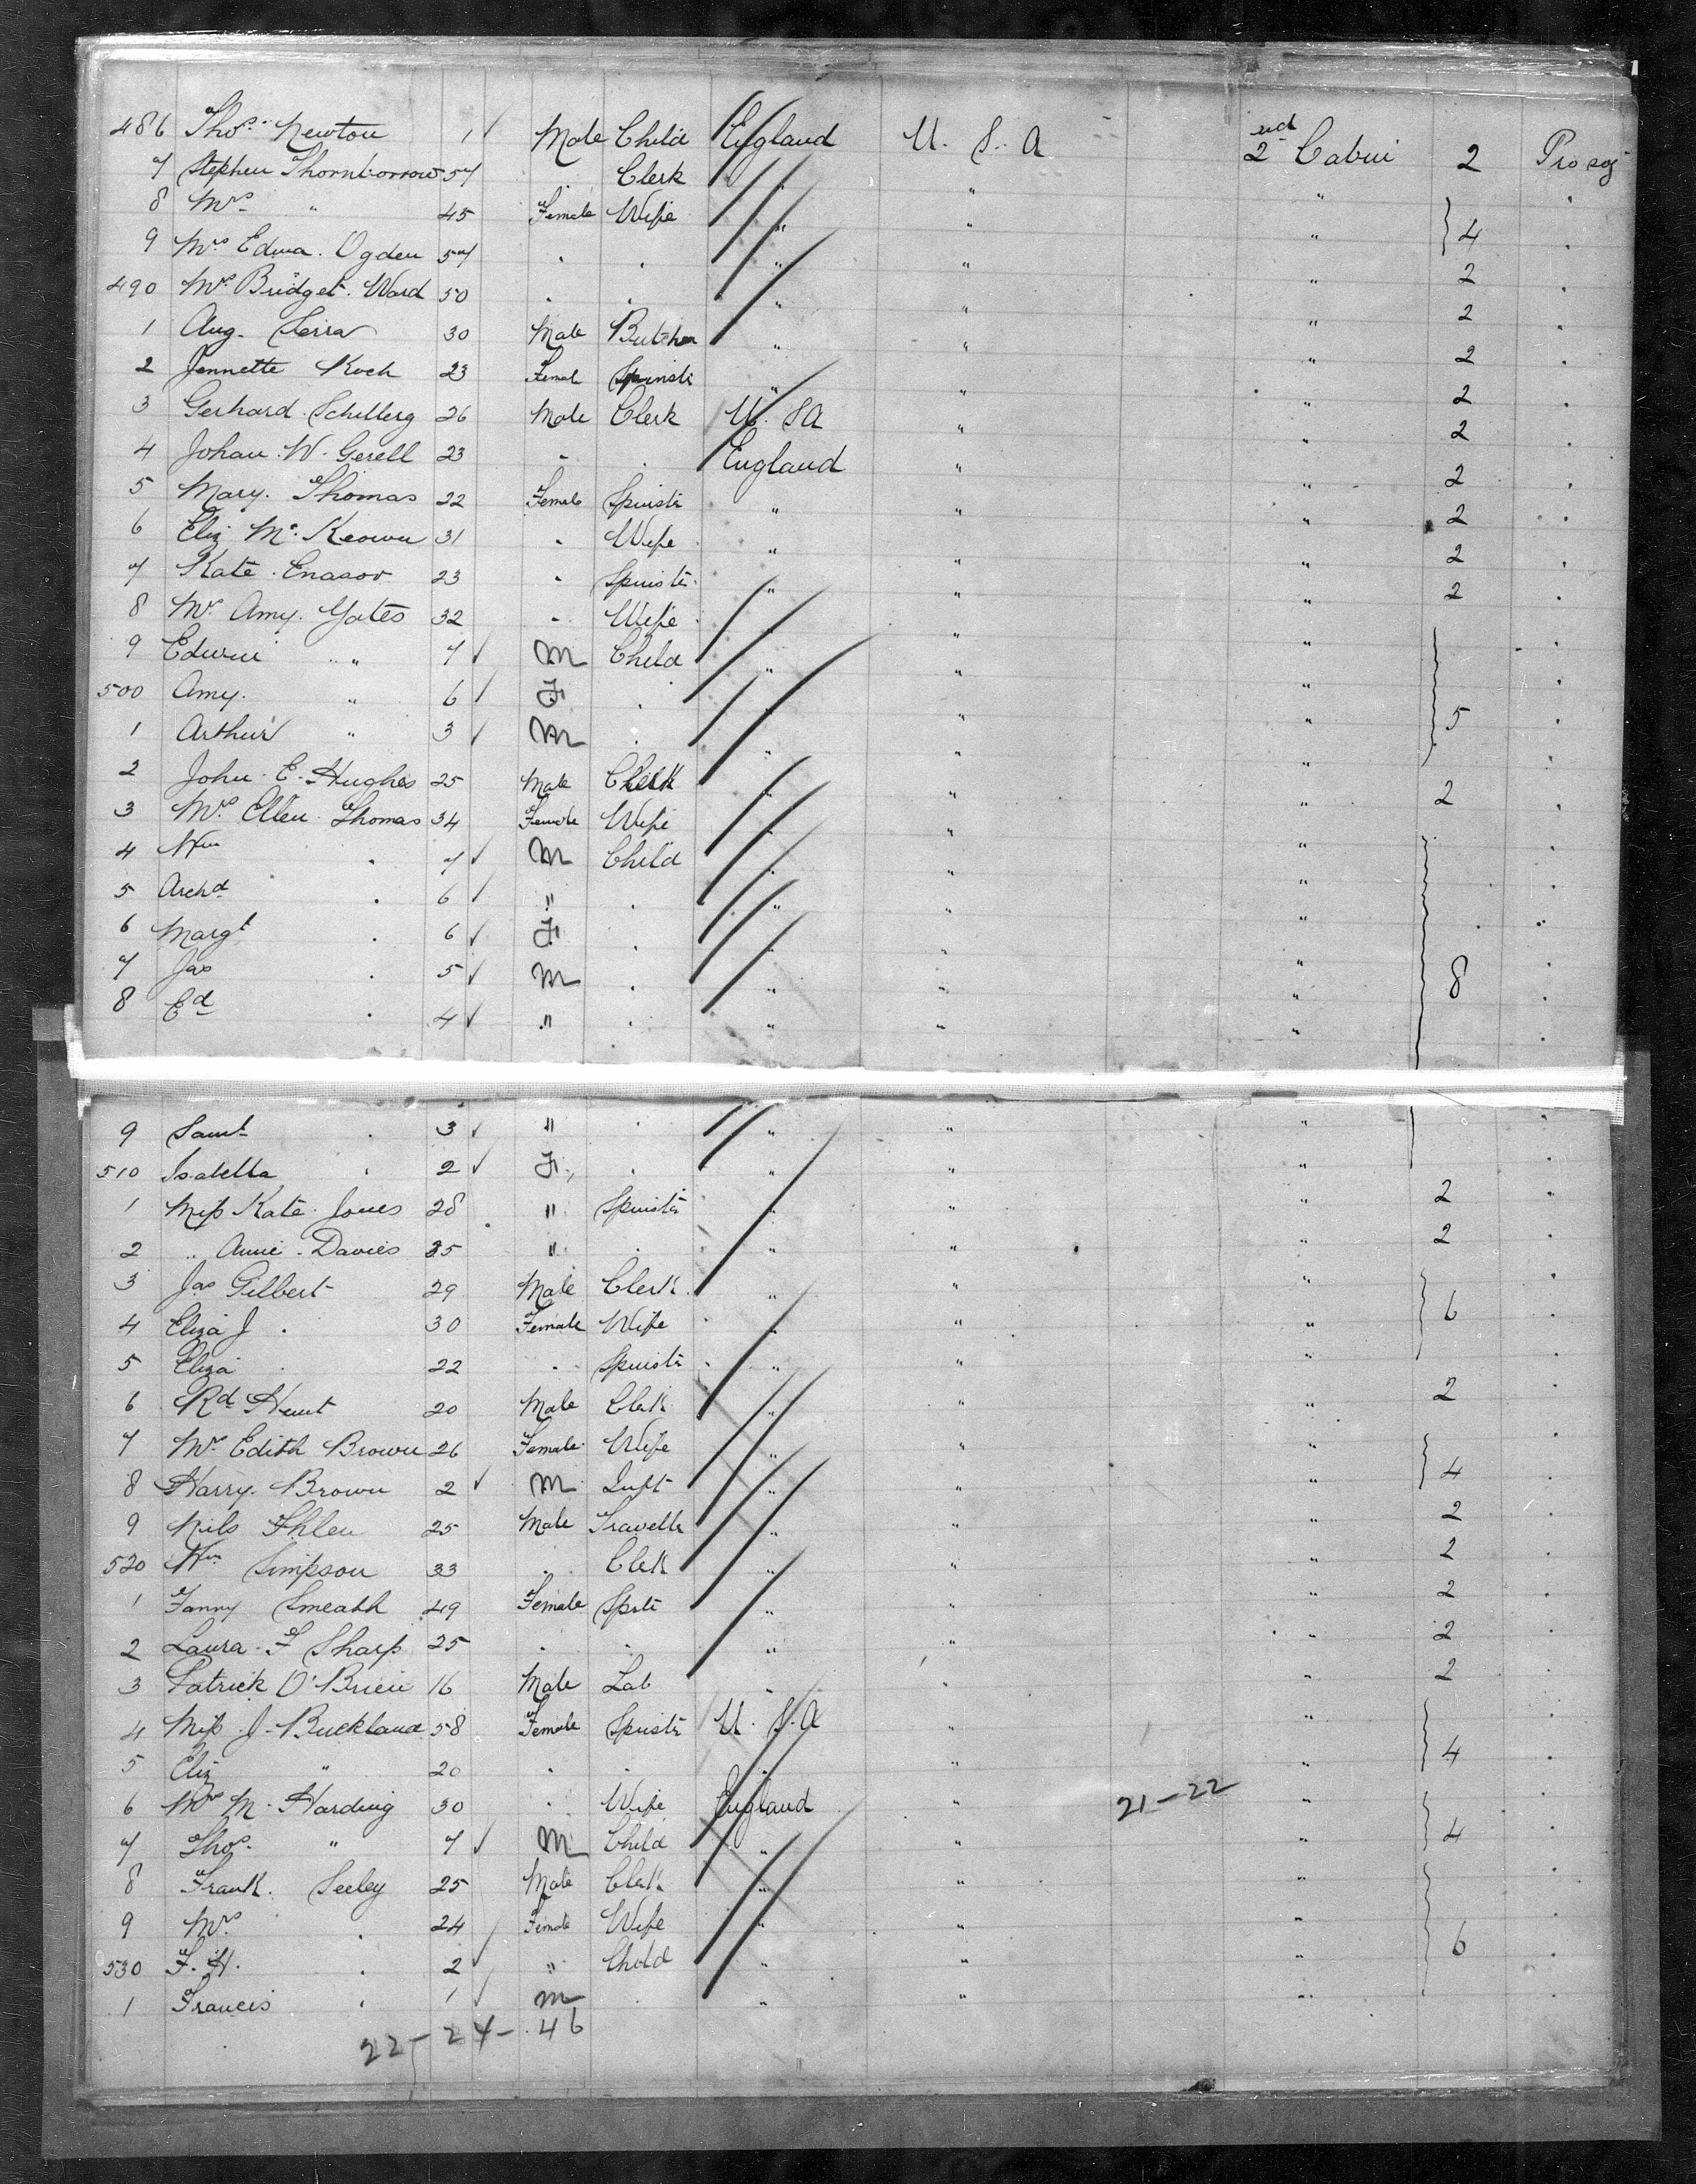 486 Thos. Newton 1 ✓ Male Child England U. S. A 2nd Cabin 2 Pro soj
7 Stephen Thornborrow 57 . Clerk " " " .
8 Mrs " 45 Female Wife " " " 4 .
9 Mrs Edwa. Ogden 57 . . " " " 2 .
490 Mrs Bridget. Ward 50 . . " " " 2 .
1 Aug. 30 Male Butcher " " " 2 .
2 Jennette Koch 23 Female Spinstr " " " 2 .
3 Gerhard. Schillerg 26 Male Clerk U. S A " " 2 .
4 Johan. W. Gerell 23 " . England " " 2 .
5 Mary. Thomas 22 Female Spinstr " " " 2 .
6 Eliz Mc. Keown 31 " Wife " " " 2 .
7 Kate. 23 " Spinstr. " " " 2 .
8 Mrs Amy. Yates 32 " Wife " " " .
9 Edwin " 7 ✓ M Child " " " .
500 Amy. " 6 ✓ F . " " " 5 .
1 Arthur " 3 ✓ M . " " " .
2 John. E. Hughes 25 Male Clerk " " " 2 .
3 Mrs. Ellen. Thomas 34 Female Wife " " " .
4 Wm . 7 ✓ M Child " " " .
5 Archd . 6 ✓ " . " " " .
6 Margt . 6 ✓ F . " " " .
7 Jas . 5 ✓ M . " " " 8 .
8 Ed . 4 ✓ " . " " " .
9 Saml . 3 ✓ " . " " " .
510 Isabella . 2 ✓ F. . " " " .
1 Miss Kate. Jones 28 " Spinstr " " " 2 .
2 " Annie. Davies 35 " . " " " 2 .
3 Jas Gilbert 29 Male Clerk. " " " .
4 Eliza J . 30 Female Wife " " " 6 .
5 Eliza . 22 . Spinstr " " " .
6 Rd Hunt 20 Male Clerk " " " 2 .
7 Mrs. Edith Brown 26 Female Wife " " " .
8 Harry. Brown 2 ✓ M Inft " " " 4 .
9 Nils 25 Male Travellr " " " 2 .
520 Wm Simpson 33 . Clerk " " " 2 .
1 Fanny 49 Female Spstr " " " 2 .
2 Laura. F Sharp 25 . . " " " 2 .
3 Patrick O'Brien 16 Male Lab " " " 2 .
4 Miss. J. Buckland 58 Female Spinstr U. S. A " " .
5 Eliz " 20 . . . " " 4 .
6 Mrs M. Harding 30 . Wife England " 21-22 " .
7 Thos. " 7 ✓ M Child " " " 4 .
8 Frank. Seeley 25 Male Clerk " " " .
9 Mrs. . 24 Female Wife " " " .
530 F. H. . 2 ✓ " Child " " " 6 .
1 Francis . 1 ✓ M . " " " .
22-24-46